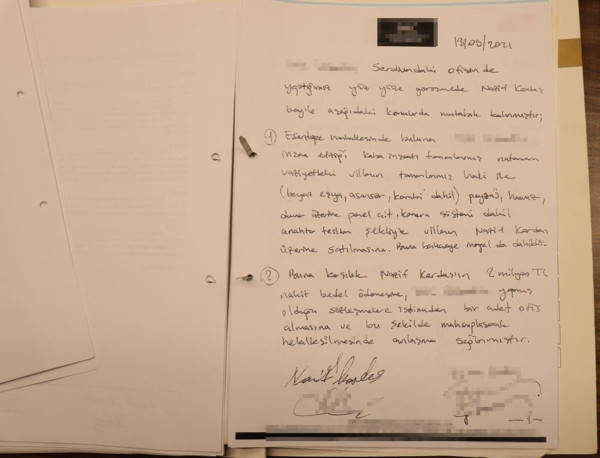 13/09/2021
Sendamdaki ofisimde
yaptığımız yüz yüze görüşmede Nazif Kardaş
beyle aşağıdaki konularda mutabık kalınmıştır;
1 Esentepe mahallesinde bulunan
inşa ettiği kaba inşaatı tamamlanmış natamam
vaziyetteki villanın tamamlanmış hali ile
(beyaz eşya, asansör, kombi dahil) peyzaj, havuz,
duvar üzerine panel çit, kamera sistemi dahil
anahtar teslim şekliyle villanın Nazif Kardaş
üzerine satılmasına. Buna dahildir.
2 Buna karşılık Nazif Kardaşın 2 milyon TL
nakit bedel ödemesine, yapmış
olduğu sözleşmelere istinaden bir adet ofis
almasına ve bu şekilde mahsuplaşarak
helalleşilmesinde anlaşma sağlanmıştır.
Nazif Kardaş
-1-